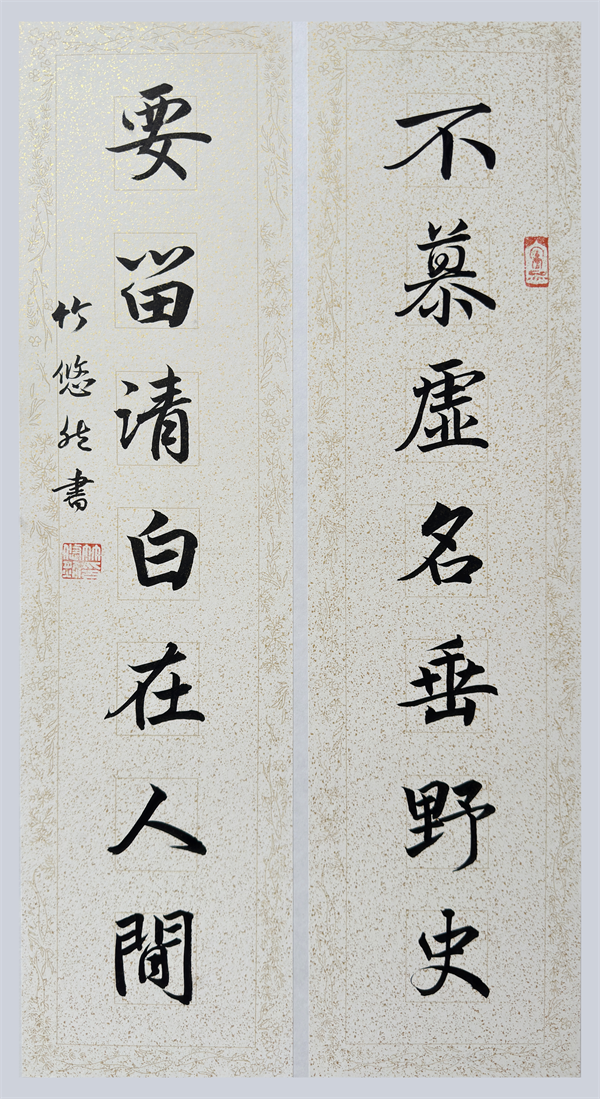 不慕虛名垂野史
要留清白在人間
竹悠然書